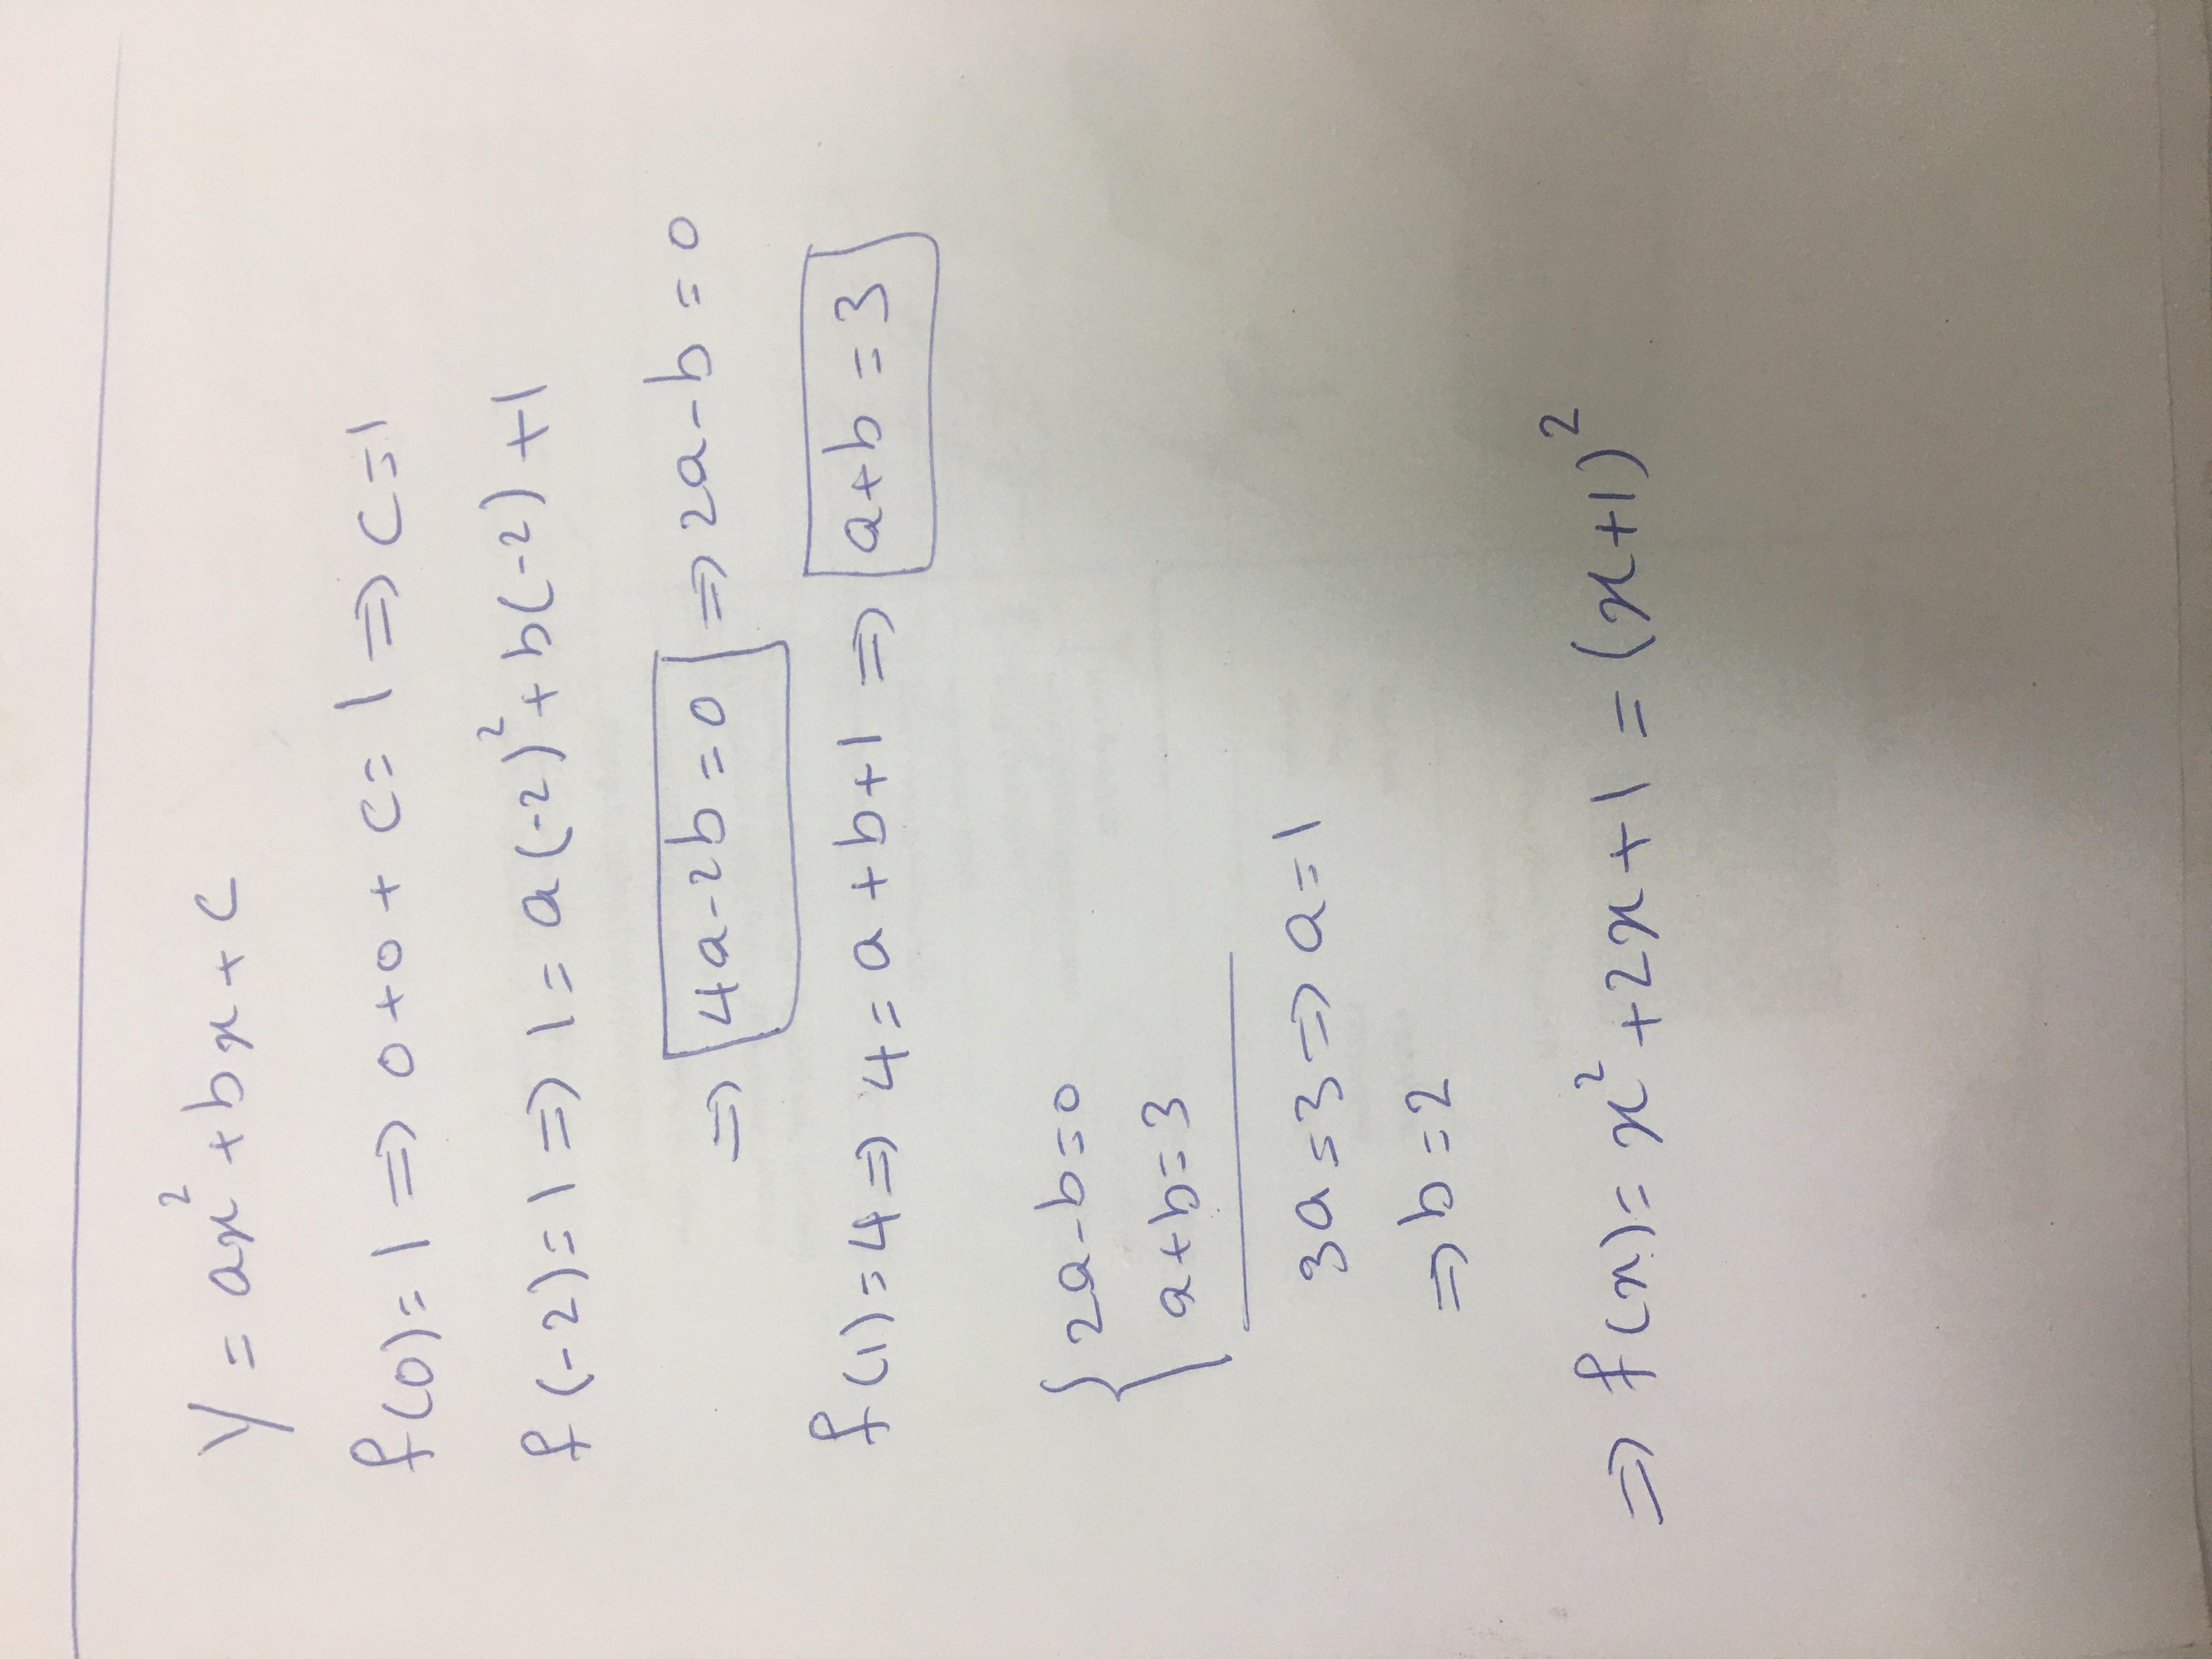 y = ax² + bx + c
f(0) = 1 ⇒ 0 + 0 + c = 1 ⇒ c = 1
f(-2) = 1 ⇒ 1 = a(-2)² + b(-2) + 1
⇒ 4a - 2b = 0 ⇒ 2a - b = 0
f(1) = 4 ⇒ 4 = a + b + 1 ⇒ a + b = 3
{ 2a - b = 0
a + b = 3
3a = 3 ⇒ a = 1
⇒ b = 2
⇒ f(x) = x² + 2x + 1 = (x + 1)²